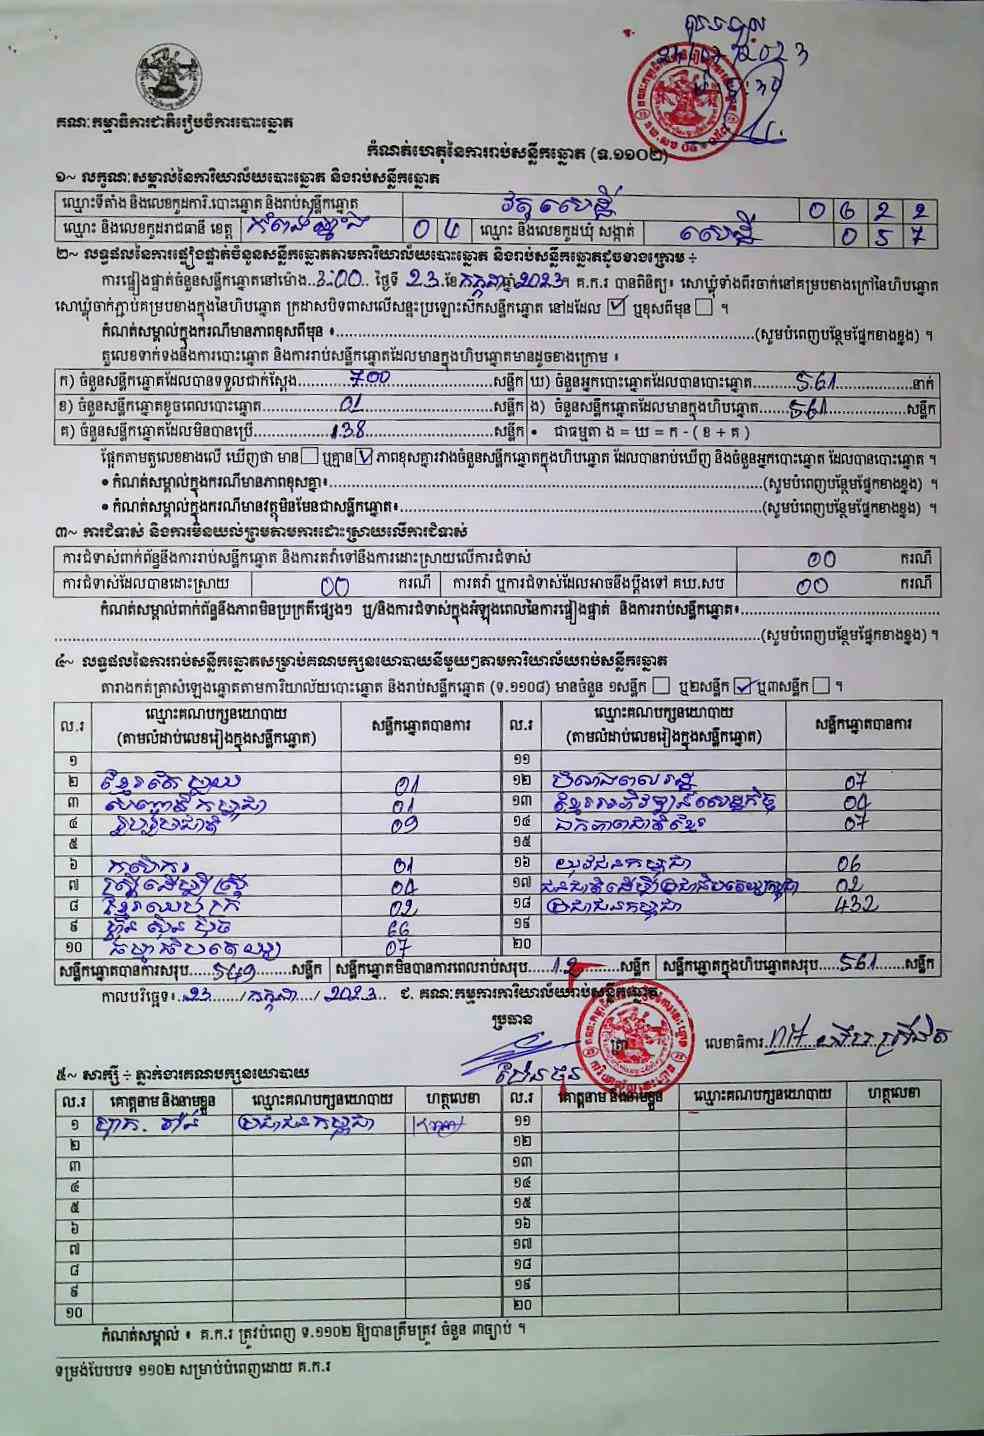 គណៈកម្មាធិការជាតិរៀបចំការបោះឆ្នោត
កំណត់ហេតុនៃការរាប់សន្លឹកឆ្នោត (ទ.១១០២)
១~ លក្ខណៈសម្គាល់នៃការិយាល័យបោះឆ្នោត និងរាប់សន្លឹកឆ្នោត
ឈ្មោះទីតាំង និងលេខកូដការិ.បោះឆ្នោត និងរាប់សន្លឹកឆ្នោត វត្តសេដ្ឋី 0 6 2 2
ឈ្មោះ និងលេខកូដរាជធានី ខេត្ត កំពង់ឆ្នាំង 0 4 ឈ្មោះ និងលេខកូដឃុំ សង្កាត់ សេដ្ឋី 0 5 7
២~ លទ្ធផលនៃការផ្ទៀងផ្ទាត់ចំនួនសន្លឹកឆ្នោតតាមការិយាល័យបោះឆ្នោត និងរាប់សន្លឹកឆ្នោតដូចខាងក្រោម ÷
ការផ្ទៀងផ្ទាត់ចំនួនសន្លឹកឆ្នោតនៅម៉ោង 3:00 ថ្ងៃទី 23 ខែ កក្កដា ឆ្នាំ 2023 ។ គ.ក.រ បានពិនិត្យ៖ សោឃ្លុំទាំងពីរចាក់នៅគម្របខាងក្រៅនៃហិបឆ្នោត
សោឃ្លុំចាក់ភ្ជាប់គម្របខាងក្នុងនៃហិបឆ្នោត ក្រដាសបិទពាសលើសន្ទះប្រឡោះស៊កសន្លឹកឆ្នោត នៅដដែល ☑ ឬខុសពីមុន ☐ ។
កំណត់សម្គាល់ក្នុងករណីមានភាពខុសពីមុន ៖ (សូមបំពេញបន្ថែមផ្នែកខាងខ្នង) ។
តួលេខទាក់ទងនឹងការបោះឆ្នោត និងការរាប់សន្លឹកឆ្នោតដែលមានក្នុងហិបឆ្នោតមានដូចខាងក្រោម ៖
ក) ចំនួនសន្លឹកឆ្នោតដែលបានទទួលជាក់ស្តែង 700 សន្លឹក ឃ) ចំនួនអ្នកបោះឆ្នោតដែលបានបោះឆ្នោត 561 នាក់
ខ) ចំនួនសន្លឹកឆ្នោតខូចពេលបោះឆ្នោត 01 សន្លឹក ង) ចំនួនសន្លឹកឆ្នោតដែលមានក្នុងហិបឆ្នោត 561 សន្លឹក
គ) ចំនួនសន្លឹកឆ្នោតដែលមិនបានប្រើ 138 សន្លឹក • ជាធម្មតា ង = ឃ = ក - ( ខ + គ )
ផ្អែកតាមតួលេខខាងលើ ឃើញថា មាន ☐ ឬគ្មាន ☑ ភាពខុសគ្នារវាងចំនួនសន្លឹកឆ្នោតក្នុងហិបឆ្នោត ដែលបានរាប់ឃើញ និងចំនួនអ្នកបោះឆ្នោត ដែលបានបោះឆ្នោត ។
• កំណត់សម្គាល់ក្នុងករណីមានភាពខុសគ្នា៖ (សូមបំពេញបន្ថែមផ្នែកខាងខ្នង) ។
• កំណត់សម្គាល់ក្នុងករណីមានវត្ថុមិនមែនជាសន្លឹកឆ្នោត៖ (សូមបំពេញបន្ថែមផ្នែកខាងខ្នង) ។
៣~ ការជំទាស់ និងការមិនយល់ព្រមតាមការដោះស្រាយលើការជំទាស់
ការជំទាស់ពាក់ព័ន្ធនឹងការរាប់សន្លឹកឆ្នោត និងការតវ៉ាទៅនឹងការដោះស្រាយលើការជំទាស់ 00 ករណី
ការជំទាស់ដែលបានដោះស្រាយ 00 ករណី ការតវ៉ា ឬការជំទាស់ដែលអាចនឹងប្តឹងទៅ គឃ.សប 00 ករណី
កំណត់សម្គាល់ពាក់ព័ន្ធនឹងភាពមិនប្រក្រតីផ្សេងៗ ឬ/និងការជំទាស់ក្នុងអំឡុងពេលនៃការផ្ទៀងផ្ទាត់ និងការរាប់សន្លឹកឆ្នោត៖
(សូមបំពេញបន្ថែមផ្នែកខាងខ្នង) ។
៤~ លទ្ធផលនៃការរាប់សន្លឹកឆ្នោតសម្រាប់គណបក្សនយោបាយនីមួយៗតាមការិយាល័យរាប់សន្លឹកឆ្នោត
តារាងកត់ត្រាសំឡេងឆ្នោតតាមការិយាល័យបោះឆ្នោត និងរាប់សន្លឹកឆ្នោត (ទ.១១០៨) មានចំនួន ១សន្លឹក ☐ ឬ២សន្លឹក ☑ ឬ៣សន្លឹក ☐ ។
ល.រ ឈ្មោះគណបក្សនយោបាយ (តាមលំដាប់លេខរៀងក្នុងសន្លឹកឆ្នោត) សន្លឹកឆ្នោតបានការ ល.រ ឈ្មោះគណបក្សនយោបាយ (តាមលំដាប់លេខរៀងក្នុងសន្លឹកឆ្នោត) សន្លឹកឆ្នោតបានការ
១ ១១
២ ខ្មែរតែមួយ 01 ១២ សំឡេងពលរដ្ឋ 07
៣ សញ្ជាតិកម្ពុជា 01 ១៣ ខ្មែរអភិវឌ្ឍន៍សេដ្ឋកិច្ច 00
៤ រួបរួមជាតិ 09 ១៤ ឯកភាពជាតិខ្មែរ 07
៥ ១៥
៦ កសិករ 01 ១៦ យុវជនកម្ពុជា 06
៧ ស្ត្រីដើម្បីស្ត្រី 00 ១៧ ជនជាតិដើមប្រជាធិបតេយ្យកម្ពុជា 02
៨ ខ្មែរឈប់ក្រ 02 ១៨ ប្រជាជនកម្ពុជា 432
៩ ហ៊្វុនស៊ិនប៉ិច 66 ១៩
១០ ធម្មាធិបតេយ្យ 07 ២០
សន្លឹកឆ្នោតបានការសរុប 549 សន្លឹក សន្លឹកឆ្នោតមិនបានការពេលរាប់សរុប 12 សន្លឹក សន្លឹកឆ្នោតក្នុងហិបឆ្នោតសរុប 561 សន្លឹក
កាលបរិច្ឆេទ៖ 23 / កក្កដា / 2023 ជ. គណៈកម្មការការិយាល័យរាប់សន្លឹកឆ្នោត
ប្រធាន
លេខាធិការ
៥~ សាក្សី ÷ ភ្នាក់ងារគណបក្សនយោបាយ
ល.រ គោត្តនាម និងនាមខ្លួន ឈ្មោះគណបក្សនយោបាយ ហត្ថលេខា ល.រ គោត្តនាម និងនាមខ្លួន ឈ្មោះគណបក្សនយោបាយ ហត្ថលេខា
១ ប្រជាជនកម្ពុជា ១១
២ ១២
៣ ១៣
៤ ១៤
៥ ១៥
៦ ១៦
៧ ១៧
៨ ១៨
៩ ១៩
១០ ២០
កំណត់សម្គាល់ ៖ គ.ក.រ ត្រូវបំពេញ ទ.១១០២ ឱ្យបានត្រឹមត្រូវ ចំនួន ៣ច្បាប់ ។
ទម្រង់បែបបទ ១១០២ សម្រាប់បំពេញដោយ គ.ក.រ